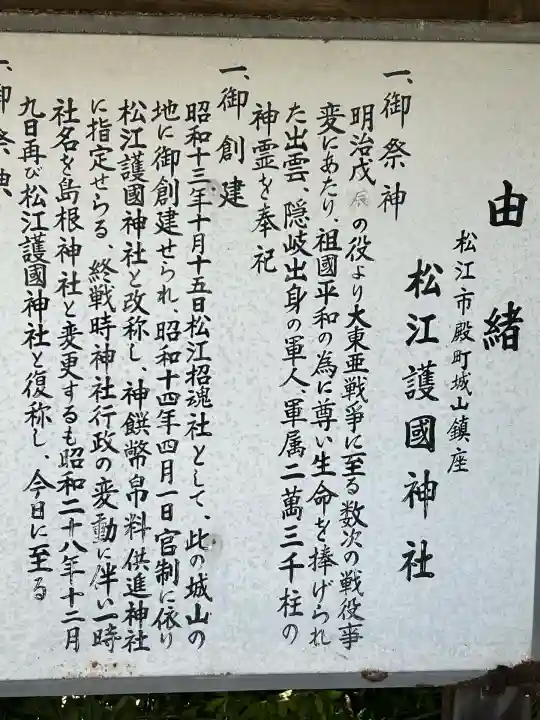 由緒
松江市殿町城山鎮座
松江護國神社
一、御祭神
明治戊辰の役より大東亜戦爭に至る数次の戦役事
変にあたり、祖國平和の為に尊い生命を捧げられ
た出雲、隠岐出身の軍人、軍属二萬三千柱の
神霊を奉祀
一、御創建
昭和十三年十月十五日松江招魂社として、此の城山の
地に御創建せられ、昭和十四年四月一日官制に依り
松江護國神社と改称し、神饌幣帛料供進神社
に指定せらる、終戦時神社行政の変動に伴い一時
社名を島根神社と変更するも昭和二十八年十二月
九日再び松江護國神社と復称し、今日に至る
一、御祭典